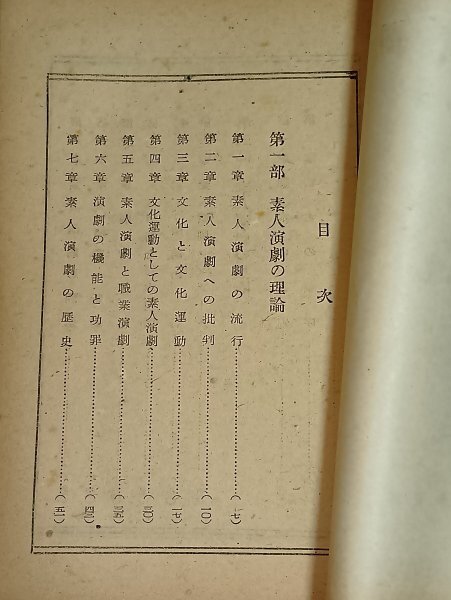 目次
第一部 素人演劇の理論
第一章 素人演劇の流行……………(七)
第二章 素人演劇への批判……………(一〇)
第三章 文化と文化運動……………(一七)
第四章 文化運動としての素人演劇……………(三〇)
第五章 素人演劇と職業演劇……………(三五)
第六章 演劇の機能と功罪……………(四三)
第七章 素人演劇の歴史……………(五一)